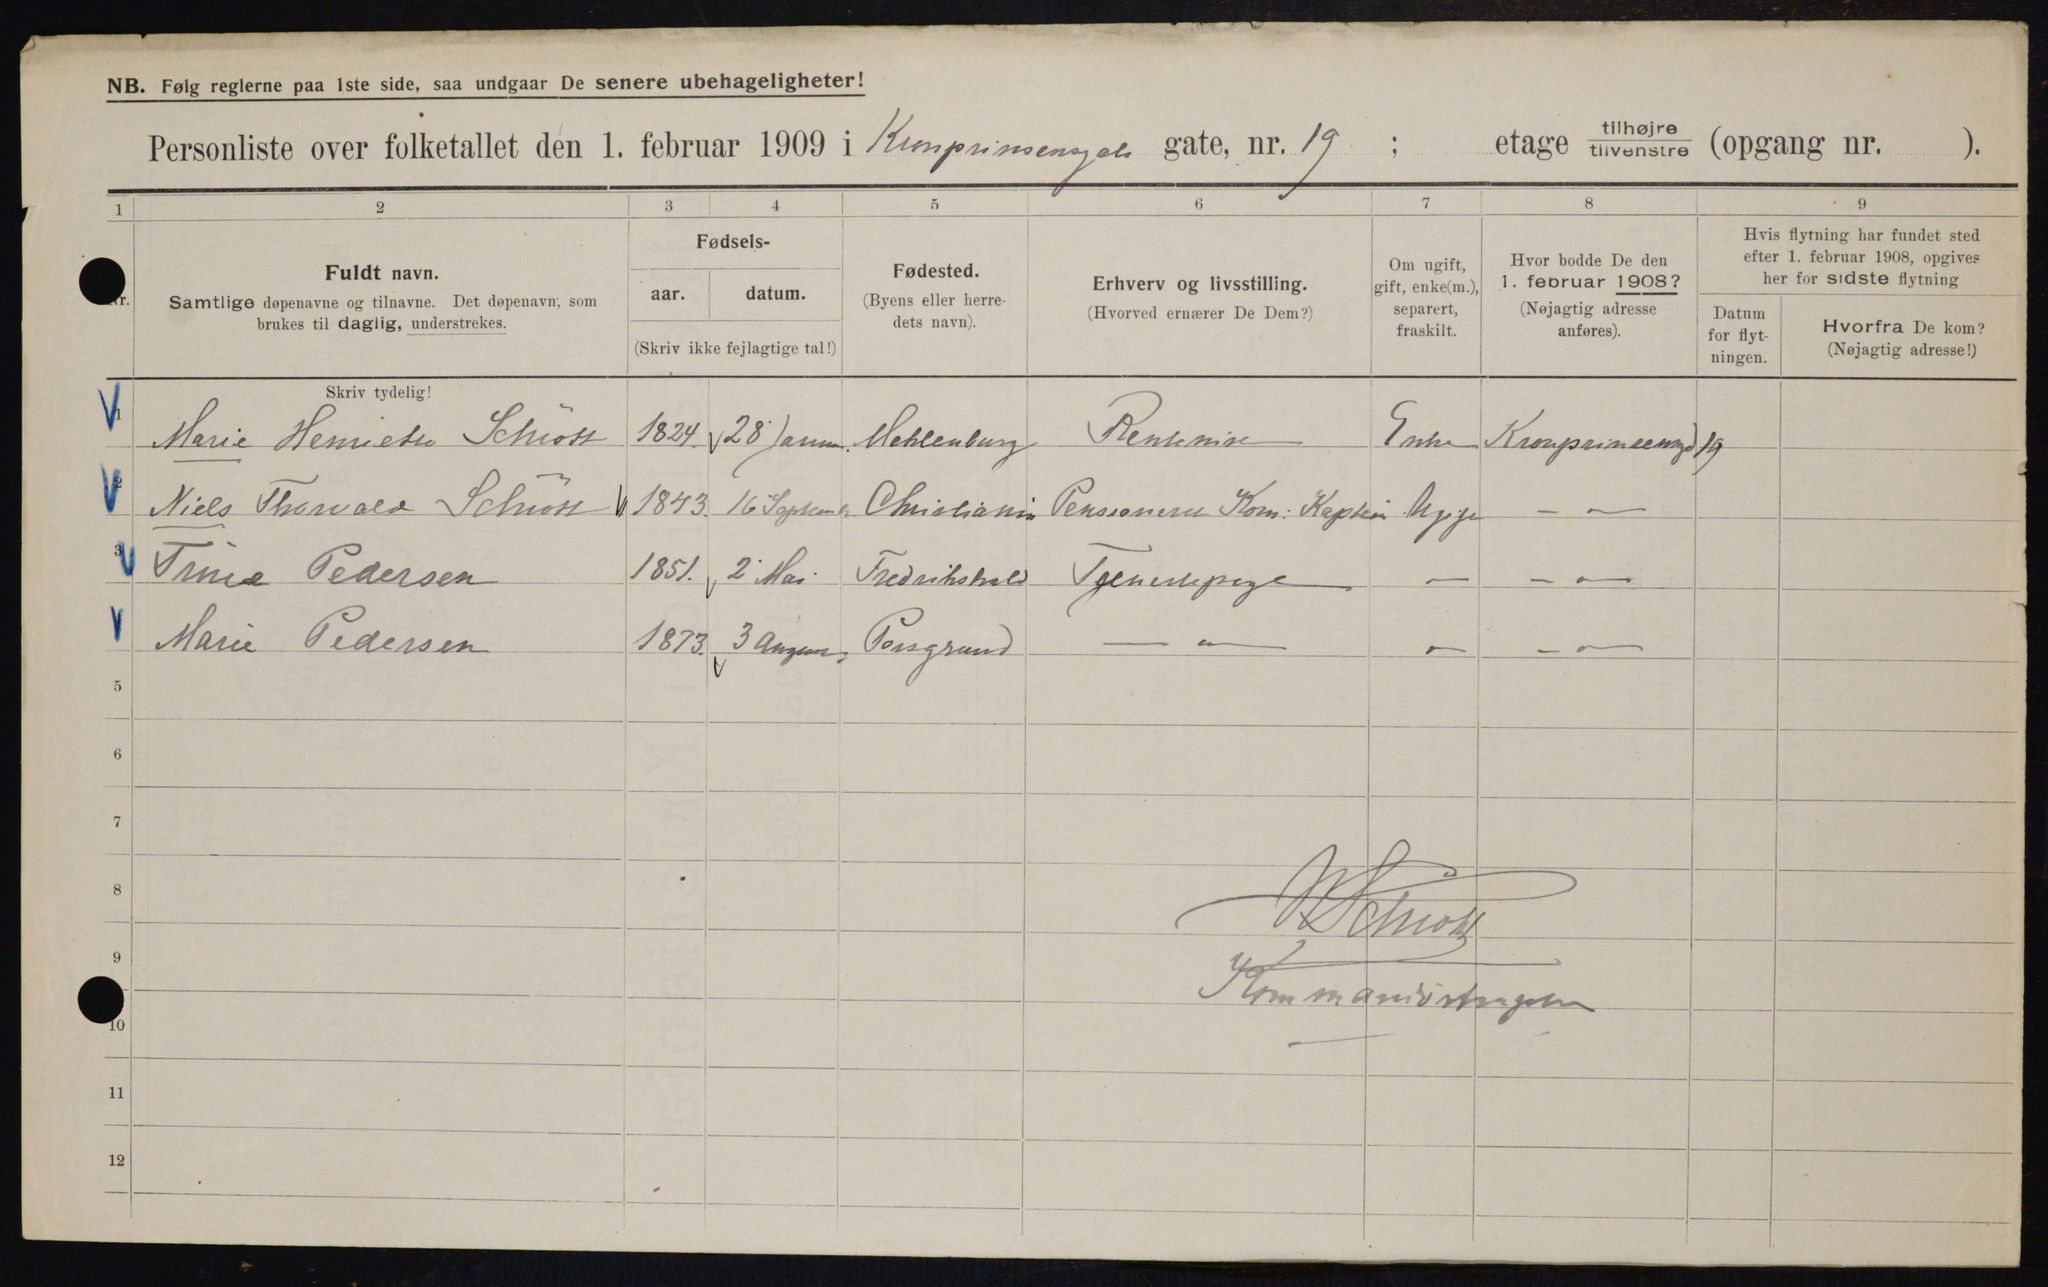 NB. Følg reglerne paa 1ste side, saa undgaar De senere ubehageligheter!
Personliste over folketallet den 1. februar 1909 i Kronprinsensgds gate, nr. 19 ; etage tilhøjre/tilvenstre (opgang nr. ).
1 2 3 4 5 6 7 8 9
Nr.
Fuldt navn.
Samtlige døpenavne og tilnavne. Det døpenavn, som
brukes til daglig, understrekes.
Fødsels-
aar. datum.
(Skriv ikke fejlagtige tal!)
Fødested.
(Byens eller herre-
dets navn).
Erhverv og livsstilling.
(Hvorved ernærer De Dem?)
Om ugift,
gift, enke(m.),
separert,
fraskilt.
Hvor bodde De den
1. februar 1908?
(Nøjagtig adresse
anføres).
Hvis flytning har fundet sted
efter 1. februar 1908, opgives
her for sidste flytning
Datum
for flyt-
ningen.
Hvorfra De kom?
(Nøjagtig adresse!)
Skriv tydelig!
1 Marie Henriette Schiött 1824. 28 Januar. Mehlenburg Rentenist Enke Kronprinsensgd 19
2 Niels Thorvald Schiött 1843. 16 September Christiania Pensioneret Kom: Kaptein Ugift — " —
3 Trine Pedersen 1851. 2 Mai. Fredrikshald Tjenestepige — " — — " —
Marie Pedersen 1873. 3 August Porsgrund — " — — " — — " —
5
6
7
8
9
10
11
12
N Schiött